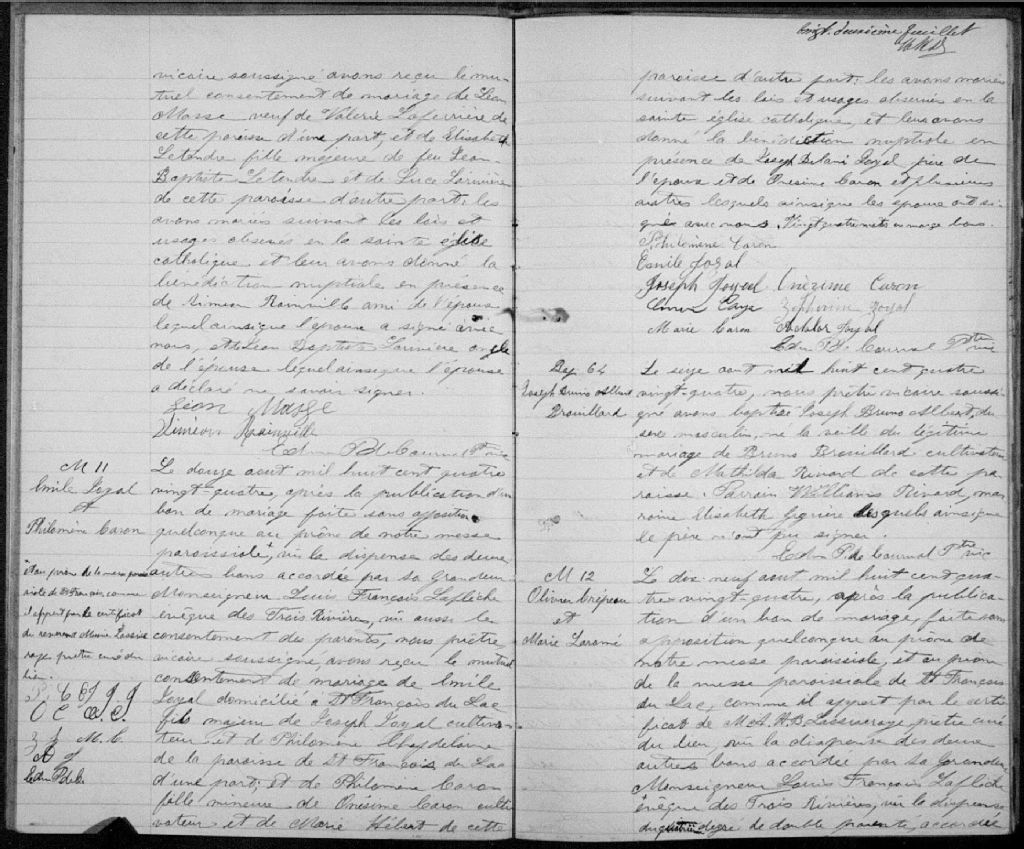 vicaire soussigné avons reçu le mu-
tuel consentement de mariage de Léon
Masse veuf de Valérie Laferrière de
cette paroisse d'une part, et de Elisabeth
Letendre fille majeure de feu Jean
Baptiste Letendre et de Luce Larivière
de cette paroisse d'autre part: les
avons mariés suivant les lois et
usages observés en la sainte église
catholique et leur avons donné la
bénédiction nuptiale en présence
de Siméon Rainville ami de l'époux
lequel ainsique l'époux a signé avec
nous, et de Jean Baptiste Larivière oncle
de l'épouse lequel ainsique l'épouse
a déclaré ne savoir signer.
Léon Masse
Siméon Rainville
Edm P. de Courval Ptre vic
M 11
Emile Joyal
et
Philomène Caron
+ et au prône de la messe parois
siale de St François, comme
il appert par le certificat
du révérend
prêtre curé du
lieu.
P. C E J J J
O C
Z J M. C.
A J
Edm P de C.
Le douze aout mil huit cent quatre
vingt-quatre, après la publication d'un
ban de mariage faite sans opposition
quelconque au prône de notre messe
paroissiale +, vu la dispense des deux
autres bans accordée par sa Grandeur
Monseigneur Louis François Laflèche
évêque des Trois Rivières, vu aussi le
consentement des parents, nous prêtre
vicaire soussigné, avons reçu le mutuel
consentement de mariage de Emile
Joyal domicilié à St François du Lac
fils majeur de Joseph Joyal cultiva-
teur et de Philomène Chapdelaine
de la paroisse de St François du Lac
d'une part; et de Philomène Caron
fille mineure de Onésime Caron culti-
vateur et de Marie Hébert de cette
Vingt-deuxième feuillet
paroisse d'autre part: les avons mariés
suivant les lois et usages observés en la
sainte église catholique, et leur avons
donné la bénédiction nuptiale en
présence de Joseph Joyal, père de
l'époux et de Onésime Caron et plusieurs
autres lesquels ainsique les époux ont si-
gné avec nous. Vingt quatre mots en marge bons.
Philomène Caron
Emile Joyal
Joseph Joyal Onézime Caron
Zéphirine Joyal
Marie Caron Joyal
Edm P. de Courval Ptre vic
Bap 64
Joseph Bruno Albert
Brouillard
Le seize aout mil huit cent quatre
vingt-quatre, nous prêtre vicaire soussi-
gné avons baptisé Joseph Bruno Albert, du
sexe masculin, né la veille du légitime
mariage de Bruno Brouillard cultivateur
et de Mathilda Rivard de cette pa-
roisse. Parrain Williams Rivard, mar
raine Elisabeth lesquels ainsique
le père n'ont pu signer.
Edm P. de Courval Ptre vic
M 12
Olivier Crépeau
et
Marie Laramé
Le dix-neuf aout mil huit cent qua-
tre vingt-quatre, après la publica-
tion d'un ban de mariage, faite sans
opposition quelconque au prône de
notre messe paroissiale, et au prône
de la messe paroissiale de St François
du Lac, comme il appert par le certi-
ficat de prêtre curé
du lieu, vu la dispense des deux
autres bans accordée par sa Grandeur
Monseigneur Louis François Laflèche
évêque des Trois Rivières, vu la dispense
degré de double parenté, accordée